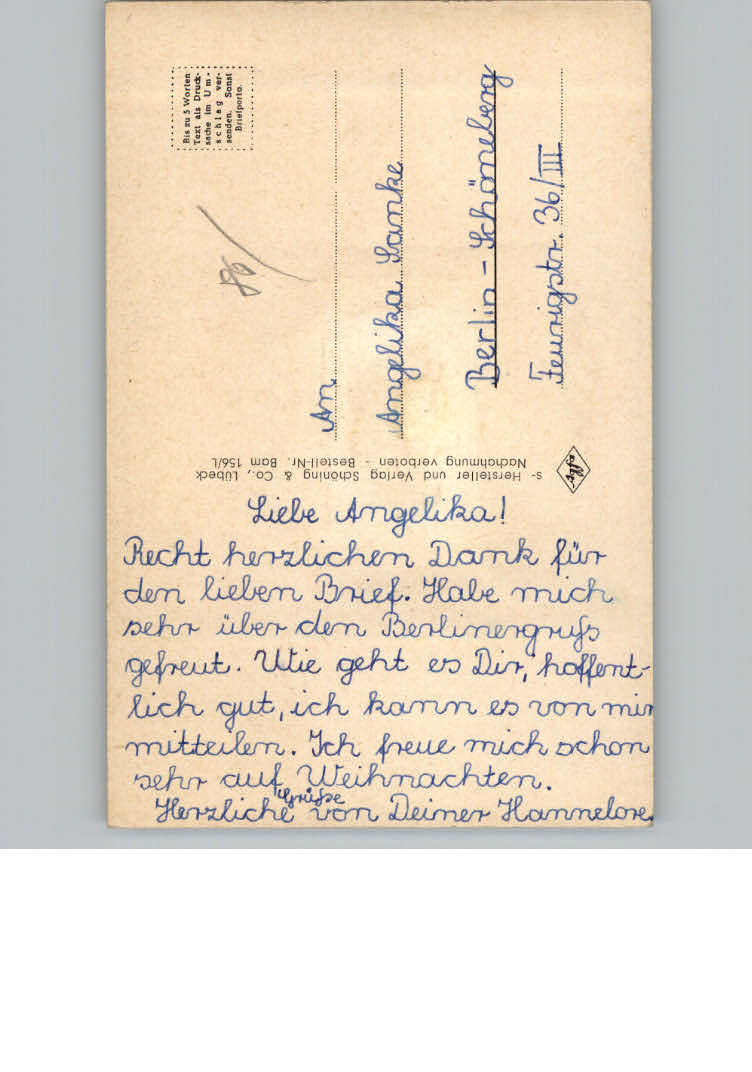 Bis zu 5 Worten
Text als Druck-
sache im Um-
schlag ver-
senden. Sonst
Briefporto.
An
Angelika Sanke
Berlin - Schöneberg
Feurigstr. 36/III
s- Hersteller und Verlag Schöning & Co., Lübeck
Nachahmung verboten - Bestell-Nr. Bam 156/L
Liebe Angelika!
Recht herzlichen Dank für
den lieben Brief. Habe mich
sehr über den Berlinergruß
gefreut. Wie geht es Dir, hoffent-
lich gut, ich kann es von mir
mitteilen. Ich freue mich schon
sehr auf Weihnachten.
Herzliche Grüße von Deiner Hannelore.